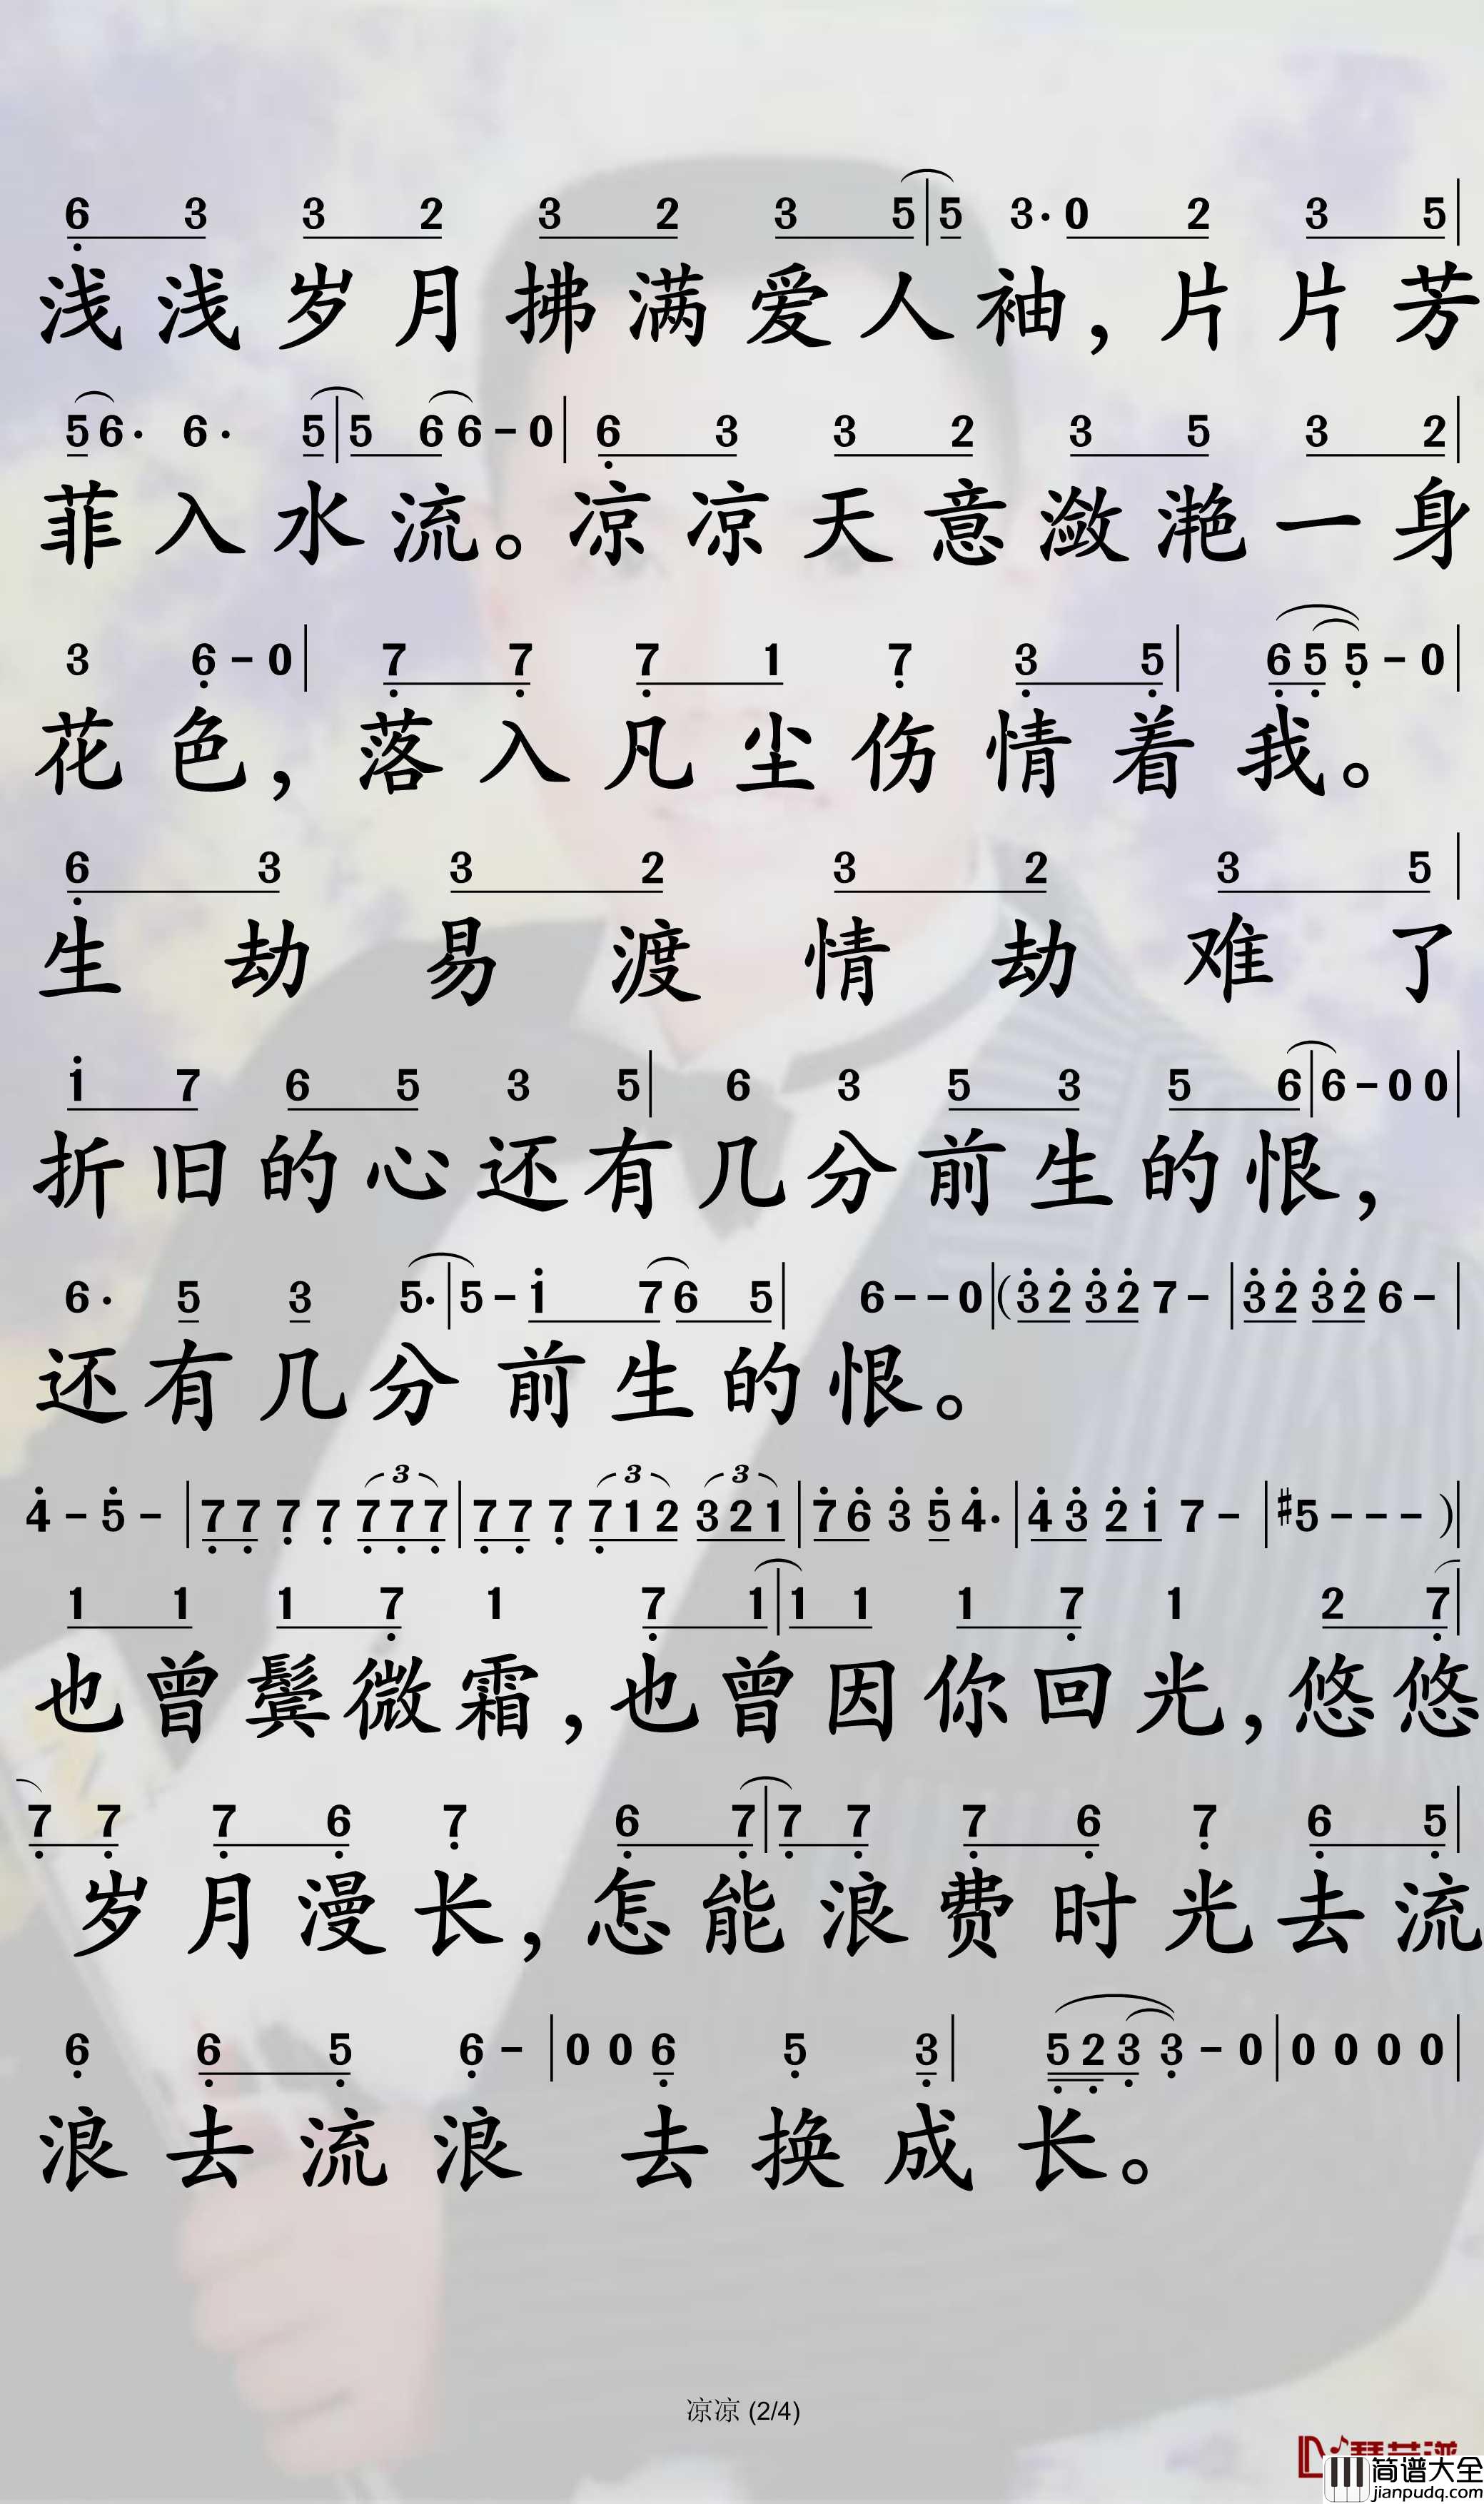 6 3 3 2 3 2 3 5 | 5 3· 0 2 3 5 |
浅浅岁月拂满爱人袖，片片芳
5 6· 6· 5 | 5 6 6 - 0 | 6 3 3 2 3 5 3 2 |
菲入水流。凉凉天意潋滟一身
3 6 - 0 | 7 7 7 1 7 3 5 | 6 5 5 - 0 |
花色，落入凡尘伤情着我。
6 3 3 2 3 2 3 5 |
生劫易渡情劫难了
1 7 6 5 3 5 | 6 3 5 3 5 6 | 6 - 0 0 |
折旧的心还有几分前生的恨，
6· 5 3 5· | 5 - 1 7 6 5 | 6 - - 0 | ( 3 2 3 2 7 - | 3 2 3 2 6 - |
还有几分前生的恨。
3 3 3
4 - 5 - | 7 7 7 7 7 7 7 | 7 7 7 7 1 2 3 2 1 | 7 6 3 5 4· | 4 3 2 1 7 - | #5 - - - ) |
1 1 1 7 1 7 1 | 1 1 1 7 1 2 7 |
也曾鬓微霜，也曾因你回光，悠悠
7 7 7 6 7 6 7 | 7 7 7 6 7 6 5 |
岁月漫长，怎能浪费时光去流
6 6 5 6 - | 0 0 6 5 3 | 5 2 3 3 - 0 | 0 0 0 0 |
浪去流浪 去换成长。
凉凉 (2/4)
简谱大全
jianpudq.com